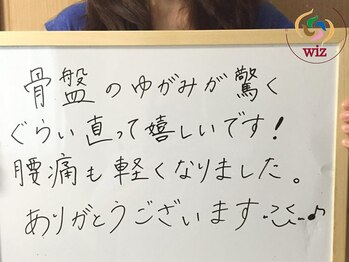 wiz
骨盤のゆがみが驚く
ぐらい直って嬉しいです!
腰痛も軽くなりました。
ありがとうございます♪